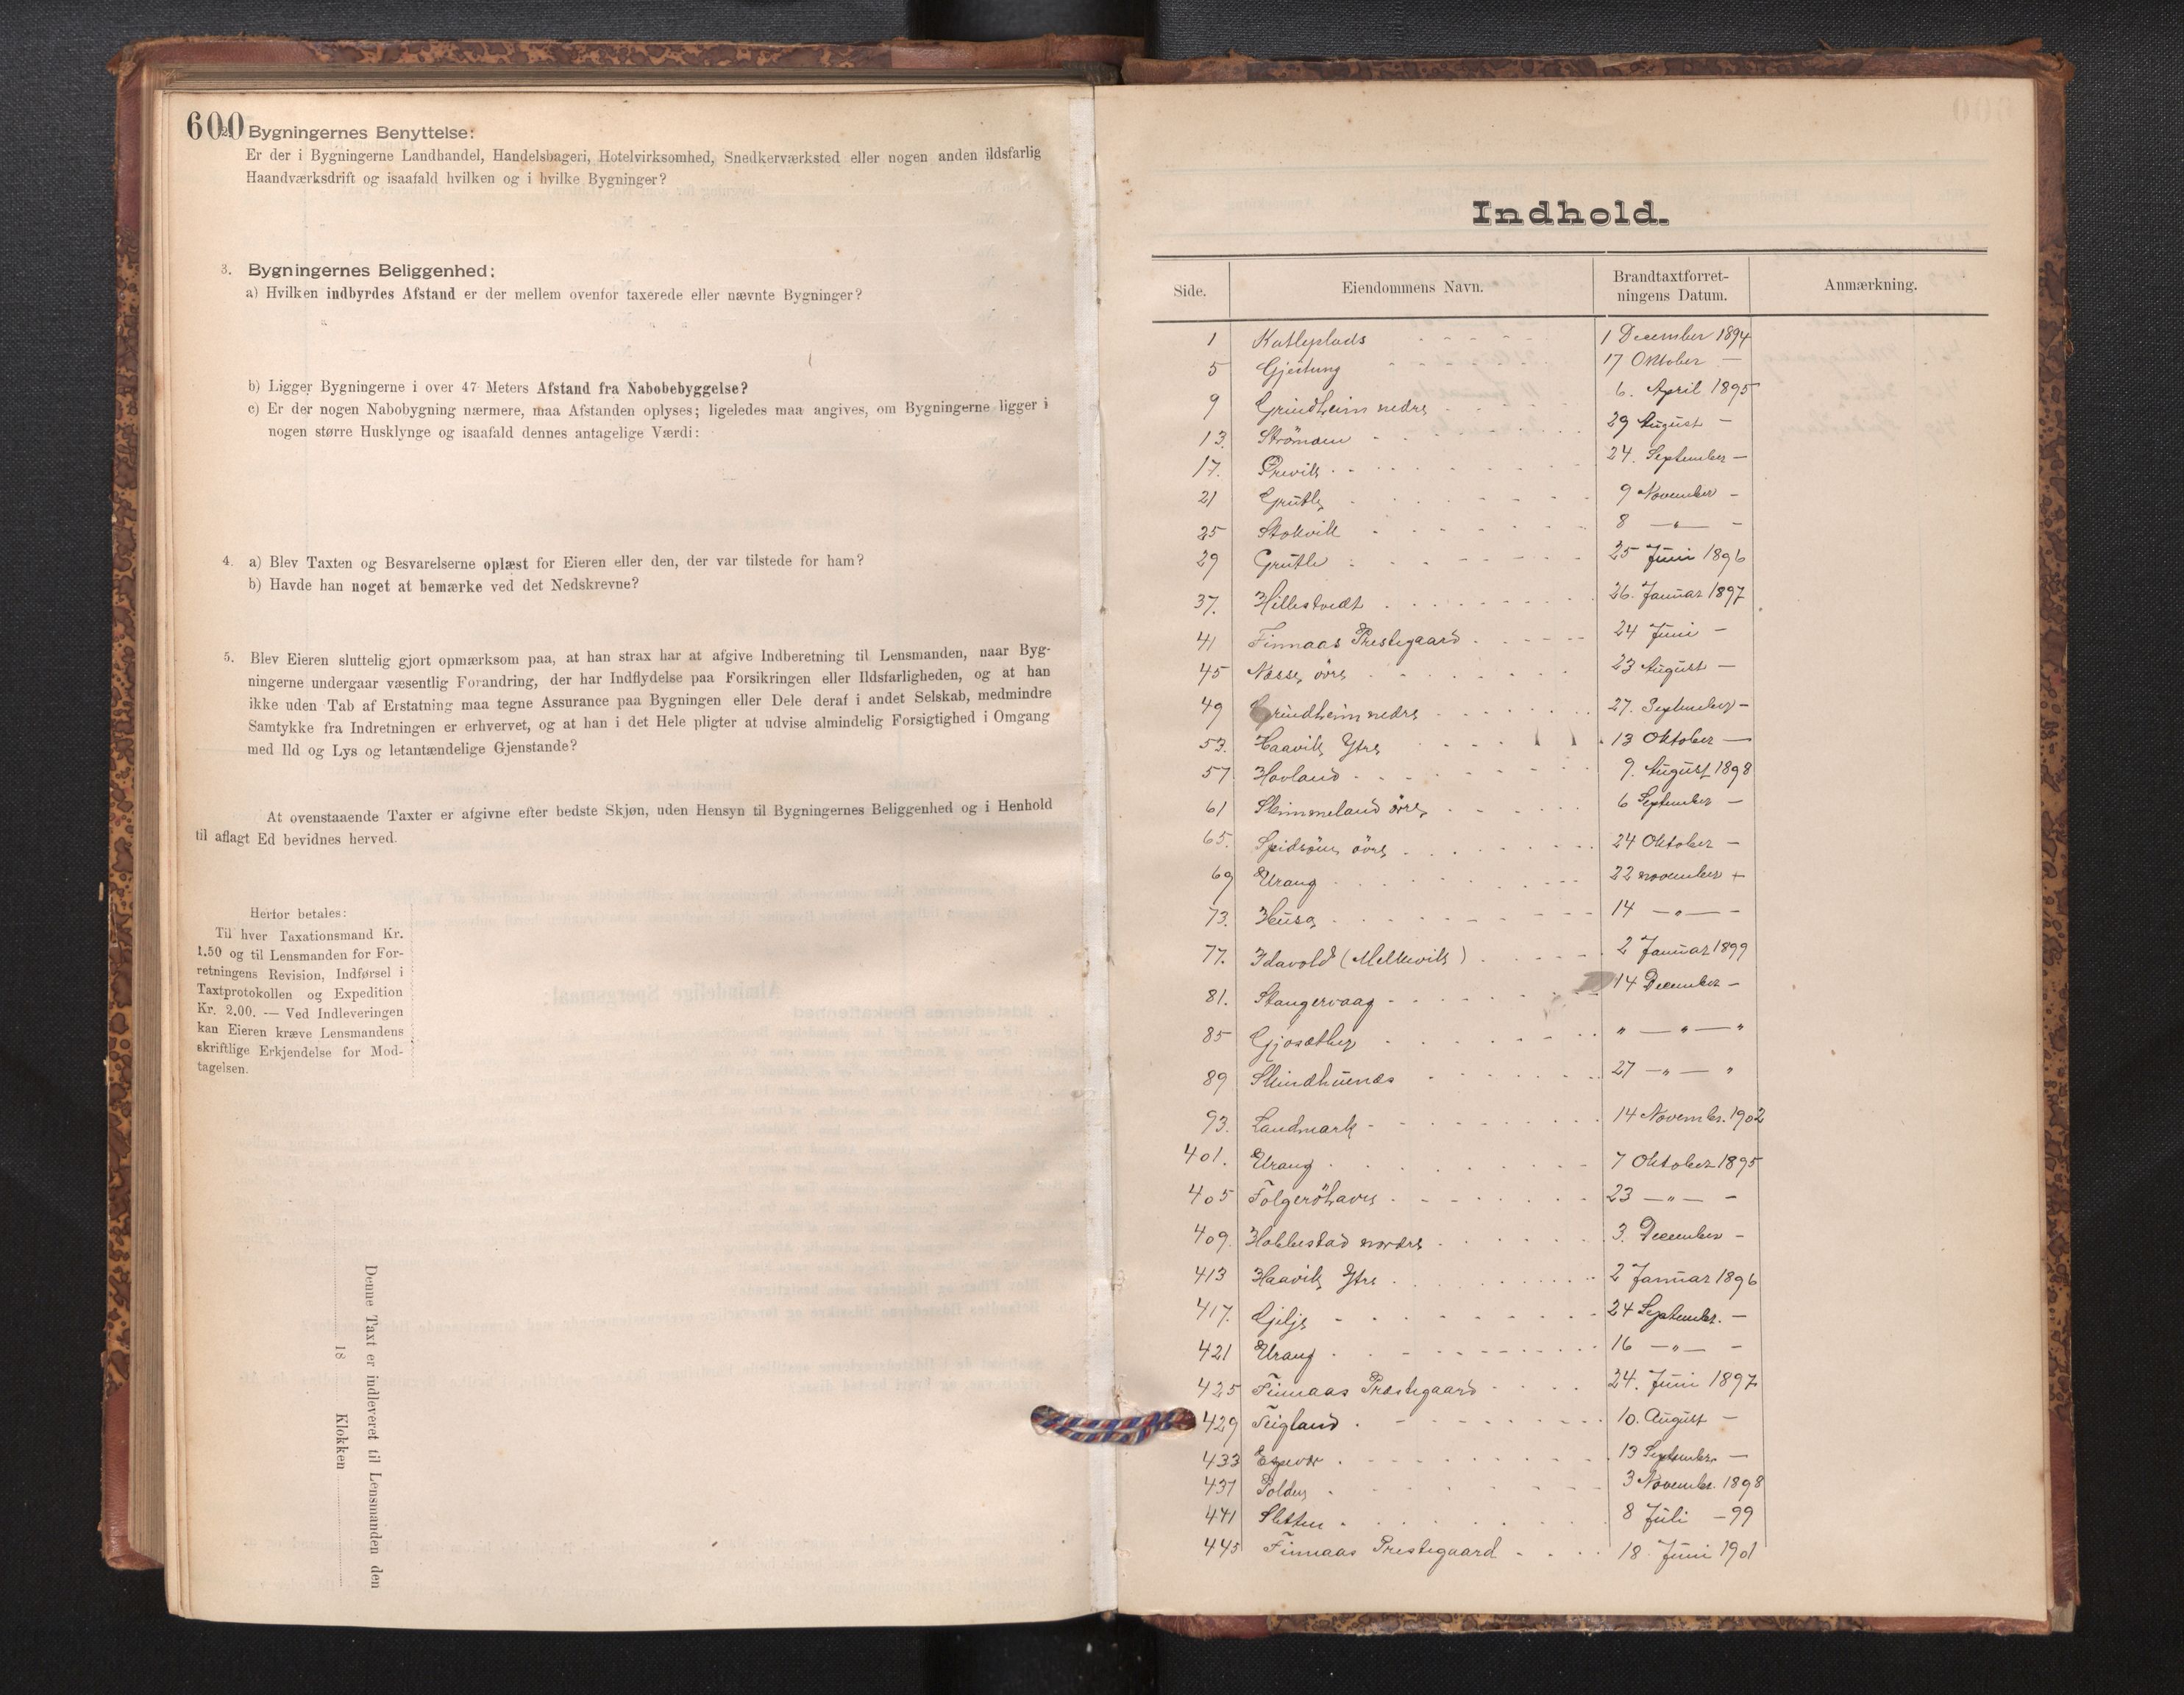 600
2. Bygningernes Benyttelse:
Er der i Bygningerne Landhandel, Handelsbageri, Hotelvirksomhed, Snedkerværksted eller nogen anden ildsfarlig
Haandværksdrift og isaafald hvilken og i hvilke Bygninger?
3. Bygningernes Beliggenhed:
a) Hvilken indbyrdes Afstand er der mellem ovenfor taxerede eller nævnte Bygninger?
b) Ligger Bygningerne i over 47 Meters Afstand fra Nabobebyggelse?
c) Er der nogen Nabobygning nærmere, maa Afstanden oplyses; ligeledes maa angives, om Bygningerne ligger i
nogen større Husklynge og isaafald dennes antagelige Værdi:
4. a) Blev Taxten og Besvarelserne oplæst for Eieren eller den, der var tilstede for ham?
b) Havde han noget at bemærke ved det Nedskrevne?
5. Blev Eieren sluttelig gjort opmærksom paa, at han strax har at afgive Indberetning til Lensmanden, naar Byg-
ningerne undergaar væsentlig Forandring, der har Indflydelse paa Forsikringen eller Ildsfarligheden, og at han
ikke uden Tab af Erstatning maa tegne Assurance paa Bygningen eller Dele deraf i andet Selskab, medmindre
Samtykke fra Indretningen er erhvervet, og at han i det Hele pligter at udvise almindelig Forsigtighed i Omgang
med Ild og Lys og letantændelige Gjenstande?
At ovenstaaende Taxter er afgivne efter bedste Skjøn, uden Hensyn til Bygningernes Beliggenhed og i Henhold
til aflagt Ed bevidnes herved.
Herfor betales:
Til hver Taxationsmand Kr.
1.50 og til Lensmanden for For-
retningens Revision, Indførsel i
Taxtprotokollen og Expedition
Kr. 2.00. — Ved Indleveringen
kan Eieren kræve Lensmandens
skriftlige Erkjendelse for Mod-
tagelsen.
Denne Taxt er indleveret til Lensmanden den
18 Klokken
Indhold.
Side. Eiendommens Navn. Brandtaxtforret-
ningens Datum. Anmærkning.
1 Katleplads 1 December 1894
5 Gjeitung 17 Oktober —
9 Grindheim nedre 6. April 1895
13. 29 August —
17. 24. September —
21 Grutle 9 November -
25 Stokvik 8 — " — -
29 Grutle 25 Juni 1896
37. Hillestvedt 26. Januar 1897
41 Finnaas Prestegaard 24 Juni -
45 Næsse övre 23 August —
49 Grindheim nedre 27. September -
53. Haavik Ytre 13 Oktober —
57 Hovland 9. August 1898
61 Skimmeland övre 6 September —
65. Spidsöen övre 24 Oktober —
69 Urang 22 november
73. Husa 14 — " — -
77. Idavold (Melkevik) 2 Januar 1899
81. Stangervaag 14 December -
85 " — " — "
89 27 — " — "
93. Landmark 14 Novembr. 1902
401. Urang 7 Oktober 1895
405 Folgeröhavn 23 — " — -
409. Hallestad nordre 3. December -
413 Haavik Ytre 2 Januar 1896
417. Gilje 24 Septembr. —
421 Urang 16 — " — -
425 Finnaas Præstegaard 24. Juni 1897
429 Teigland 10. August —
433 Espevær 13 Septembr. —
437 Polden 3 Novembr. 1898
441 Sletten 8 Juli -99
445 Finnaas Prestegaard 18 Juni 1901